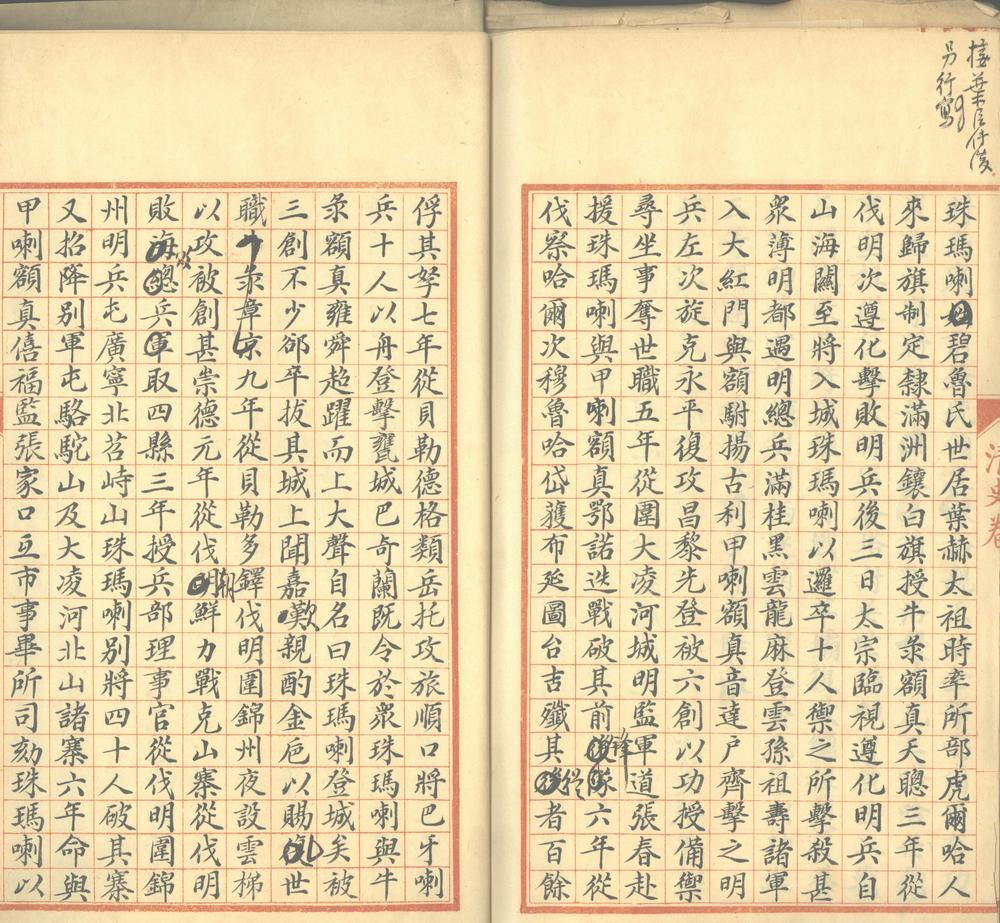 接葉臣傳後
另行寫
珠瑪喇碧魯氏世居葉赫太祖時率所部虎爾哈人
來歸旗制定隸滿洲鑲白旗授牛彔額真天聰三年從
伐明次遵化擊敗明兵後三日太宗臨視遵化明兵自
山海關至將入城珠瑪喇以邏卒十人禦之所擊殺甚
眾薄明都遇明總兵滿桂黑雲龍麻登雲孫祖壽諸軍
入大紅門與額駙揚古利甲喇額真音達戶齊擊之明
兵左次旋克永平復攻昌黎先登被六創以功授備禦
尋坐事奪世職五年從圍大凌河城明監軍道張春赴
援珠瑪喇與甲喇額真鄂諾迭戰破其前鋒隊六年從
伐察哈爾次穆魯哈岱獲布延圖台吉殲其從者百餘
俘其孥七年從貝勒德格類岳托攻旅順口將巴牙喇
兵十人以舟登擊甕城巴奇蘭既令於眾珠瑪喇與牛
彔額真雍舜超躍而上大聲自名曰珠瑪喇登城矣被
三創不少郤卒拔其城上聞嘉歎親酌金卮以賜予世
職九年從貝勒多鐸伐明圍錦州夜設雲梯
以攻被創甚崇德元年從伐朝鮮力戰克山寨從伐明
敗總兵軍取四縣三年授兵部理事官從伐明圍錦
州明兵屯廣寧北苕峙山珠瑪喇別將四十人破其寨
又招降別軍屯駱駝山及大凌河北山諸寨六年命與
甲喇額真僖福監張家口互市事畢所司劾珠瑪喇以